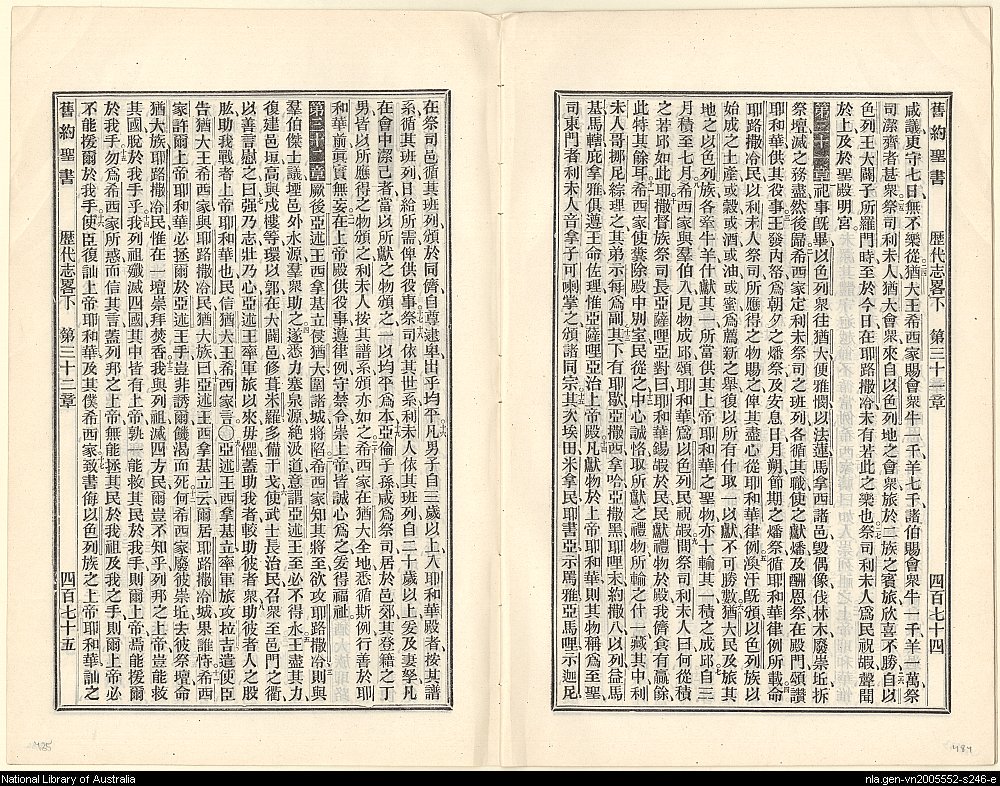 舊約聖書 歷代志畧下 第三十一章 四百七十四
咸議更守七日無不樂從猶大王希西家賜會衆牛一千羊七千諸伯賜會衆牛一千羊一萬祭
司潔齊者甚衆祭司利未人猶大會衆來自以色列地之會衆旅於二族之賓旅欣喜不勝自以
色列王大闢子所羅門時至於今日在耶路撒冷未有若此之樂也祭司利未人爲民祝嘏聲聞
於上及於聖殿明宮
第三十一章祀事旣畢以色列衆往猶大便雅憫以法蓮馬拿西諸邑毀偶像伐林木廢崇坵拆
祭壇滅之務盡然後歸希西家定利未祭司之班列各循其職使之獻燔及酬恩祭在殿門頌讚
耶和華供其役事王發內帑爲朝夕之燔祭及安息日月朔節期之燔祭循耶和華律例所載命
耶路撒冷民以利未人祭司所應得之物賜之俾其盡心從耶和華律例渙汗旣頒以色列族以
始成之土產或穀或酒或油或蜜爲薦新之舉復以所有什取一以獻不可勝數猶大民及旅其
地之以色列族各牽牛羊什獻其一所當供其上帝耶和華之聖物亦十輸其一積之成邱自三
月積至七月希西家與羣伯入見物成邱頌耶和華爲以色列民祝嘏問祭司利未人曰何從積
之若邱如此耶撒督族祭司長亞薩哩亞對曰耶和華錫嘏於民民獻禮物於殿我儕食有贏餘
此特其餘耳希西家使糞除殿中別室民從之中心誠慤取所獻之禮物所輸之什一藏其中利
未人哥挪尼綜理之其弟示每爲副其下有耶歇亞撒西拿哈亞撒黑耶哩末約撒八以列益馬
基馬轄庇拿雅俱遵王命佐理惟亞薩哩亞治上帝殿凡獻物於上帝耶和華則其物稱爲至聖
司東門者利未人音拿子可喇掌之頒諸同宗其次埃田米拿民耶書亞示馬雅亞馬哩示迦尼
在祭司邑循其班列頒於同儕自尊逮卑出乎均平凡男子自三歲以上入耶和華殿者按其譜
系循其班列日給所需俾供役事祭司依其世系利未人依其班列自二十歲以上爰及妻孥凡
在會中潔己者當以所獻之物頒之一以均平爲本亞倫子孫咸爲祭司居於邑郊其登籍之丁
男皆以所應得之物頒之利未人按其譜系頒亦如之希西家在猶大全地悉循斯例行善於耶
和華前眞實無妄在上帝殿供役事遵律例守禁令崇上帝皆誠心爲之爰得福祉
第三十二章厥後亞述王西拿基立侵猶大圍諸城將陷希西家知其將至欲攻耶路撒冷則與
羣伯傑士議堙邑外水源羣衆助之遂悉力塞泉源絶汲道意謂亞述王至必不得水王盡其力
復建邑垣高與戍樓等環以郭在大闢邑修葺米羅多備干戈使武士長治民召衆至邑門之衢
以善言慰之曰強乃志壯乃心亞述王率軍旅以來毋懼蓋助我者較助彼者衆助彼者人之股
肱助我戰者上帝耶和華也民信猶大王希西家言〇亞述王西拿基立率軍旅攻拉吉遣使臣
告猶大王希西家與耶路撒冷民猶大族曰亞述王西拿基立云爾居耶路撒冷城果誰恃希西
家許爾上帝耶和華必拯爾於亞述王手豈非誘爾饑渴而死何希西家廢彼崇坵去彼祭壇命
猶大族耶路撒冷民惟在一壇崇拜焚香我與列祖滅四方民爾豈不知乎列邦之上帝豈能救
其國脫於我手乎我列祖殲滅四國其中皆有上帝孰一能救其民於我手則爾上帝焉能援爾
於我手勿爲希西家所惑而信其言蓋列邦之上帝無能拯其民於我祖及我之手則爾上帝必
不能援爾於我手使臣復訕上帝耶和華及其僕希西家致書侮以色列族之上帝耶和華訕之
舊約聖書 歷代志畧下 第三十二章 四百七十五
485
484
National Library of Australia
nla.gen-vn2005552-s246-e